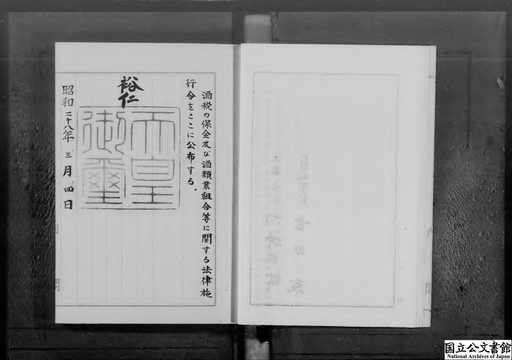 酒税の保全及び酒類業組合等に関する法律施
行令をここに公布する。
裕仁
天皇
御璽
昭和二十八年三月四日
国立公文書館
National Archives of Japan